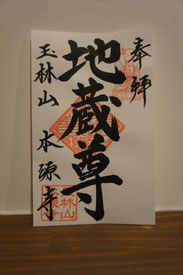 奉拝
地蔵尊
玉林山 本源寺